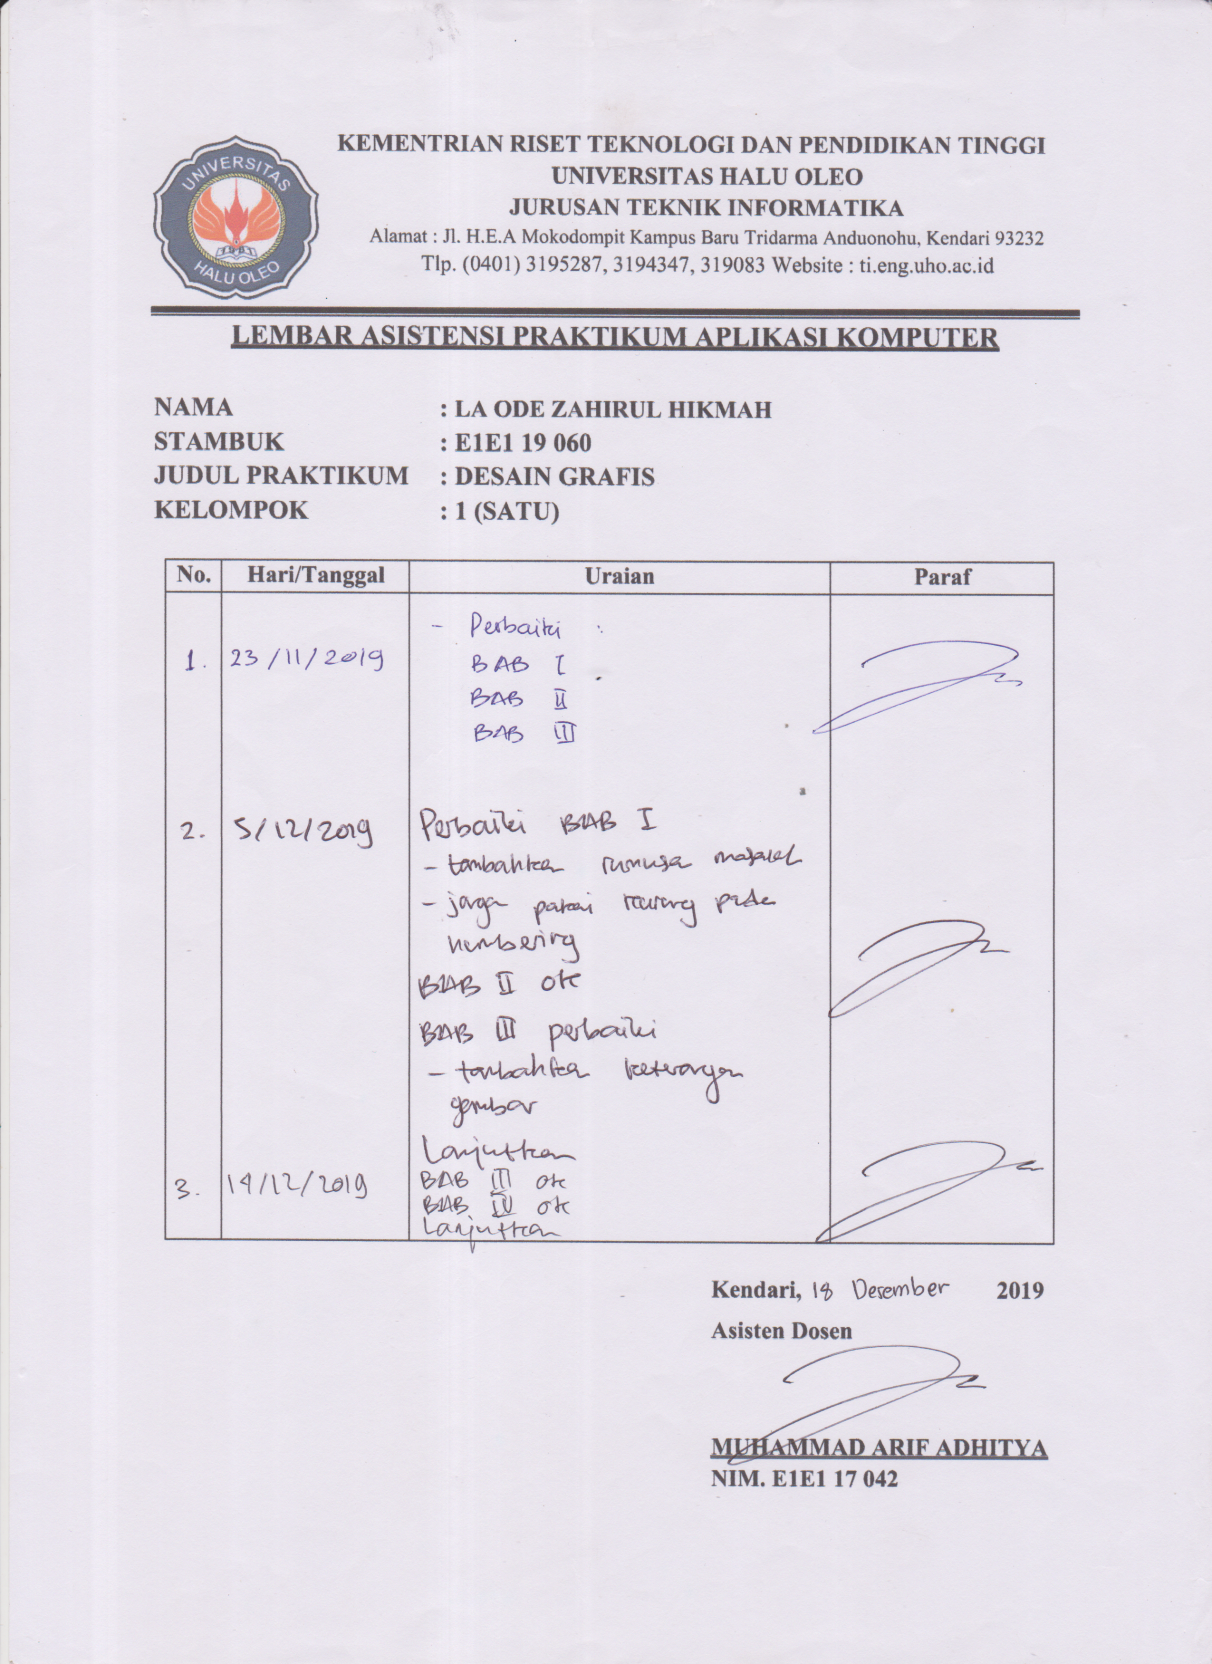 UNIVERSITAS
HALU OLEO
KEMENTRIAN RISET TEKNOLOGI DAN PENDIDIKAN TINGGI
UNIVERSITAS HALU OLEO
JURUSAN TEKNIK INFORMATIKA
Alamat : Jl. H.E.A Mokodompit Kampus Baru Tridarma Anduonohu, Kendari 93232
Tlp. (0401) 3195287, 3194347, 319083 Website : ti.eng.uho.ac.id
LEMBAR ASISTENSI PRAKTIKUM APLIKASI KOMPUTER
NAMA : LA ODE ZAHIRUL HIKMAH
STAMBUK : E1E1 19 060
JUDUL PRAKTIKUM : DESAIN GRAFIS
KELOMPOK : 1 (SATU)
No. Hari/Tanggal Uraian Paraf
- Perbaiki :
1. 23/11/2019 BAB I
BAB II
BAB III
2. 5/12/2019 Perbaiki BAB I
- tambahkan rumusan masalah
- jaga pakai kurung pada
numbering
BAB II ok
BAB III perbaiki
- tambahkan keterangan
gambar
Lanjutkan
3. 14/12/2019 BAB III ok
BAB IV ok
Lanjutkan
Kendari, 18 Desember 2019
Asisten Dosen
MUHAMMAD ARIF ADHITYA
NIM. E1E1 17 042